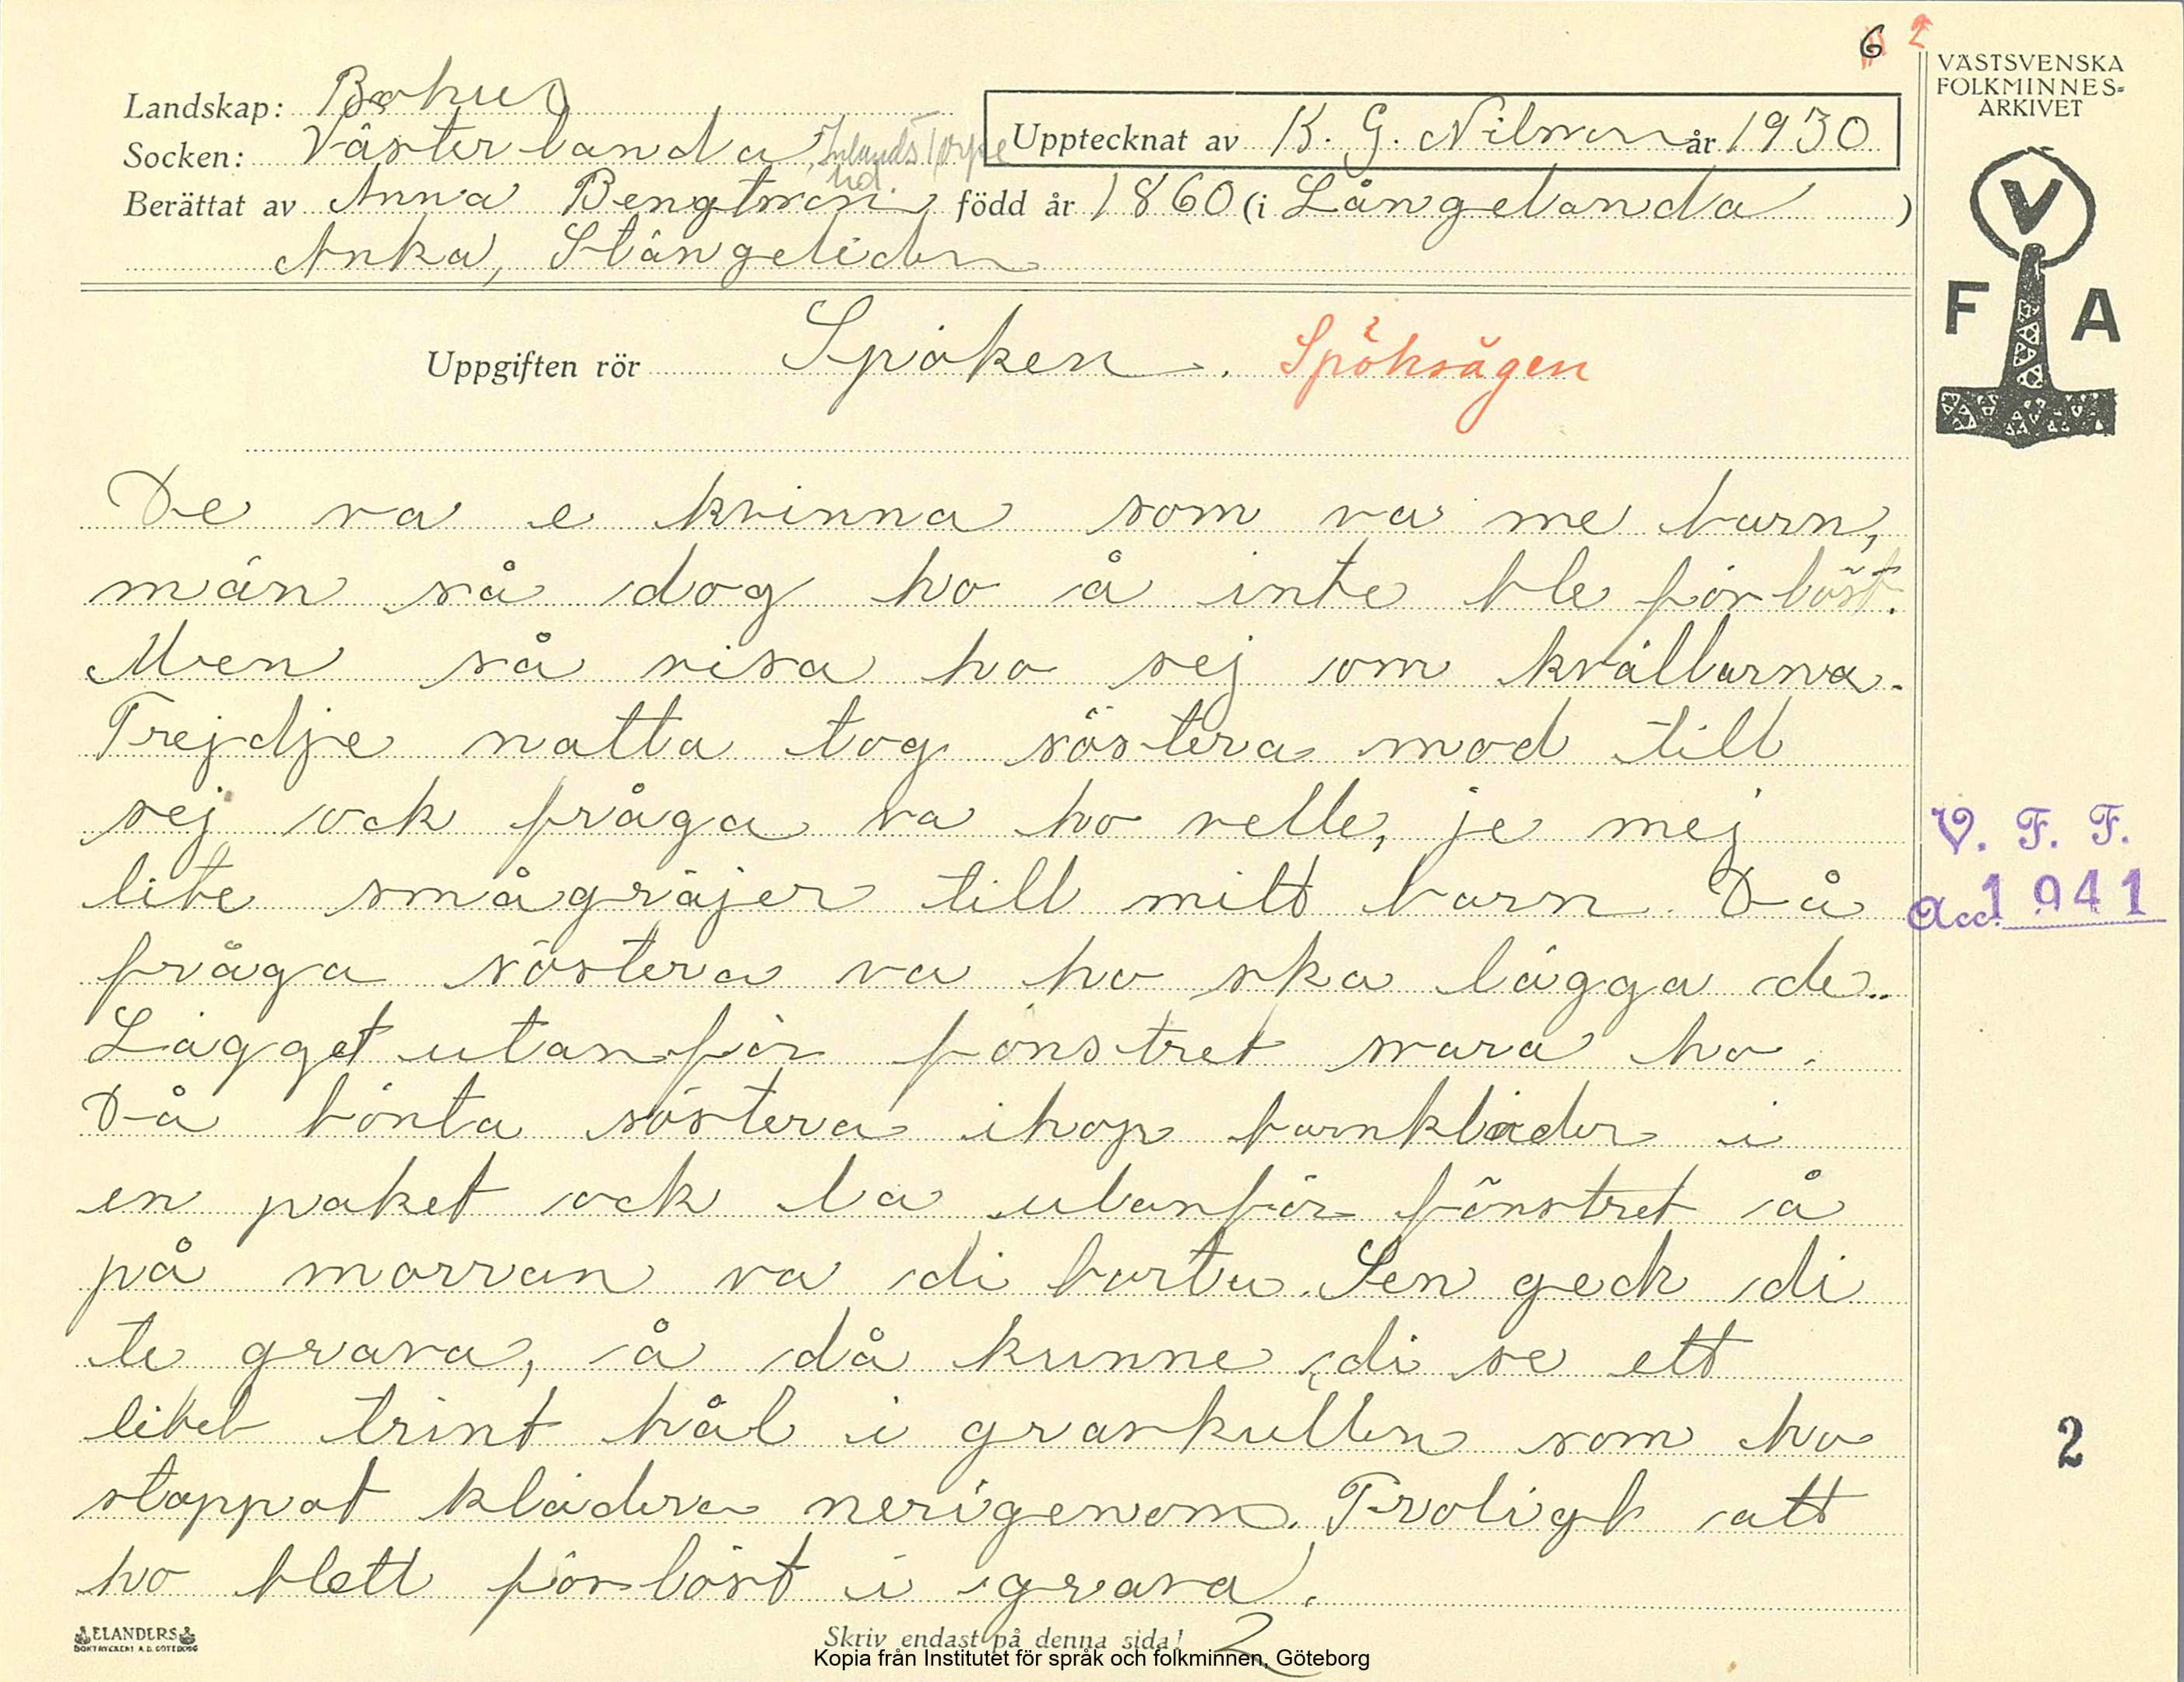 6 2
VÄSTSVENSKA
FOLKMINNES-
ARKIVET
Landskap: Bohus
Socken: Västerlanda, Inlands Torpe hd.
Upptecknat av K. G. Nilsson år 1930
Berättat av Anna Bengtsson född år 1860 (i Långelanda )
Anka, Stängeliden
V
F A
Uppgiften rör Spöken. Spöksägen
De va e kvinna som va me barn,
män så dog ho å inte ble förlöst.
Men så visa ho sej om kvällarna.
Trejdje natta tog söstera mod till
sej ock fråga va ho velle, je mej
lite smågräjer till mitt barn. Då
fråga söstera va ho ska lägga de..
Lägget utanför fönstret svara ho.
Då bönta söstera ihop barnkläder i
en paket ock la utanför fönstret å
på morran va di borta. Sen geck di
te grava, å då kunne di se ett
litet trint hål i gravkullen som ho
stoppat klädera nerigenom. Troligt att
ho blett förlöst i grava.
V. F. F.
Acc. 1941
2
ELANDERS
BOKTRYCKERI A.B. GÖTEBORG
Skriv endast på denna sida! 2
Kopia från Institutet för språk och folkminnen, Göteborg